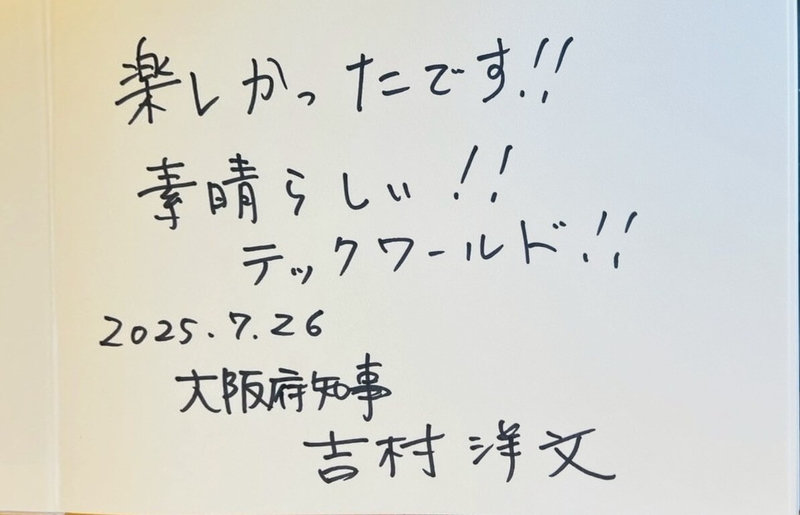 楽しかったです!!
素晴らしい!!
テックワールド!!
2025.7.26
大阪府知事
吉村洋文